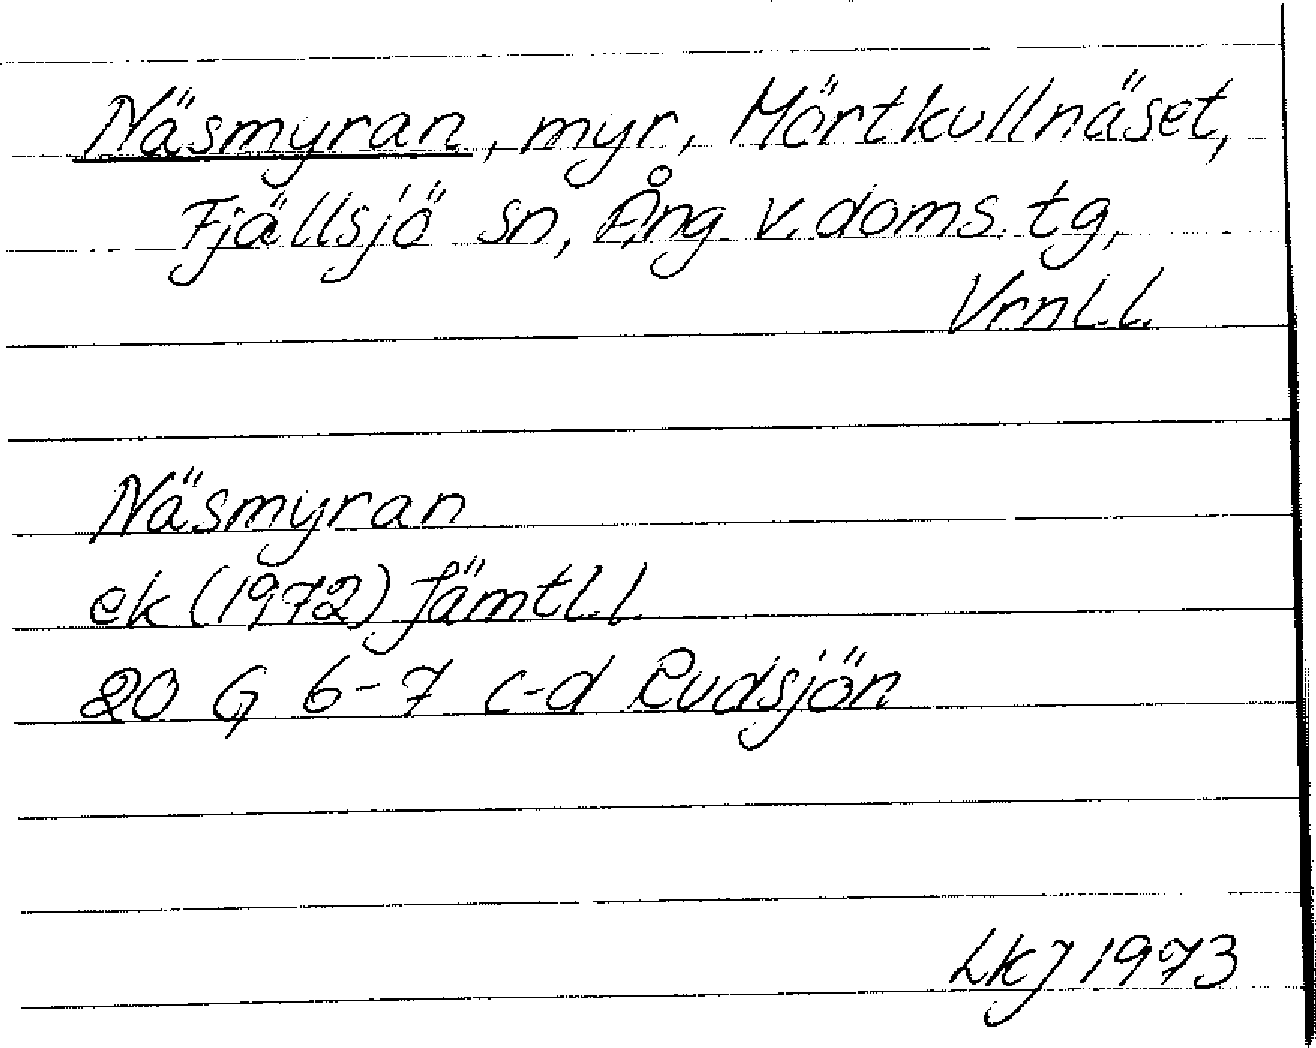 Näsmyran, myr, Mörtkullnäset,
Fjällsjö sn, Ång v. doms. tg,
Vrnl.l.
Näsmyran
ek (1972) Jämtl.l
20 G 6-7 c-d Rudsjön
LkJ 1973